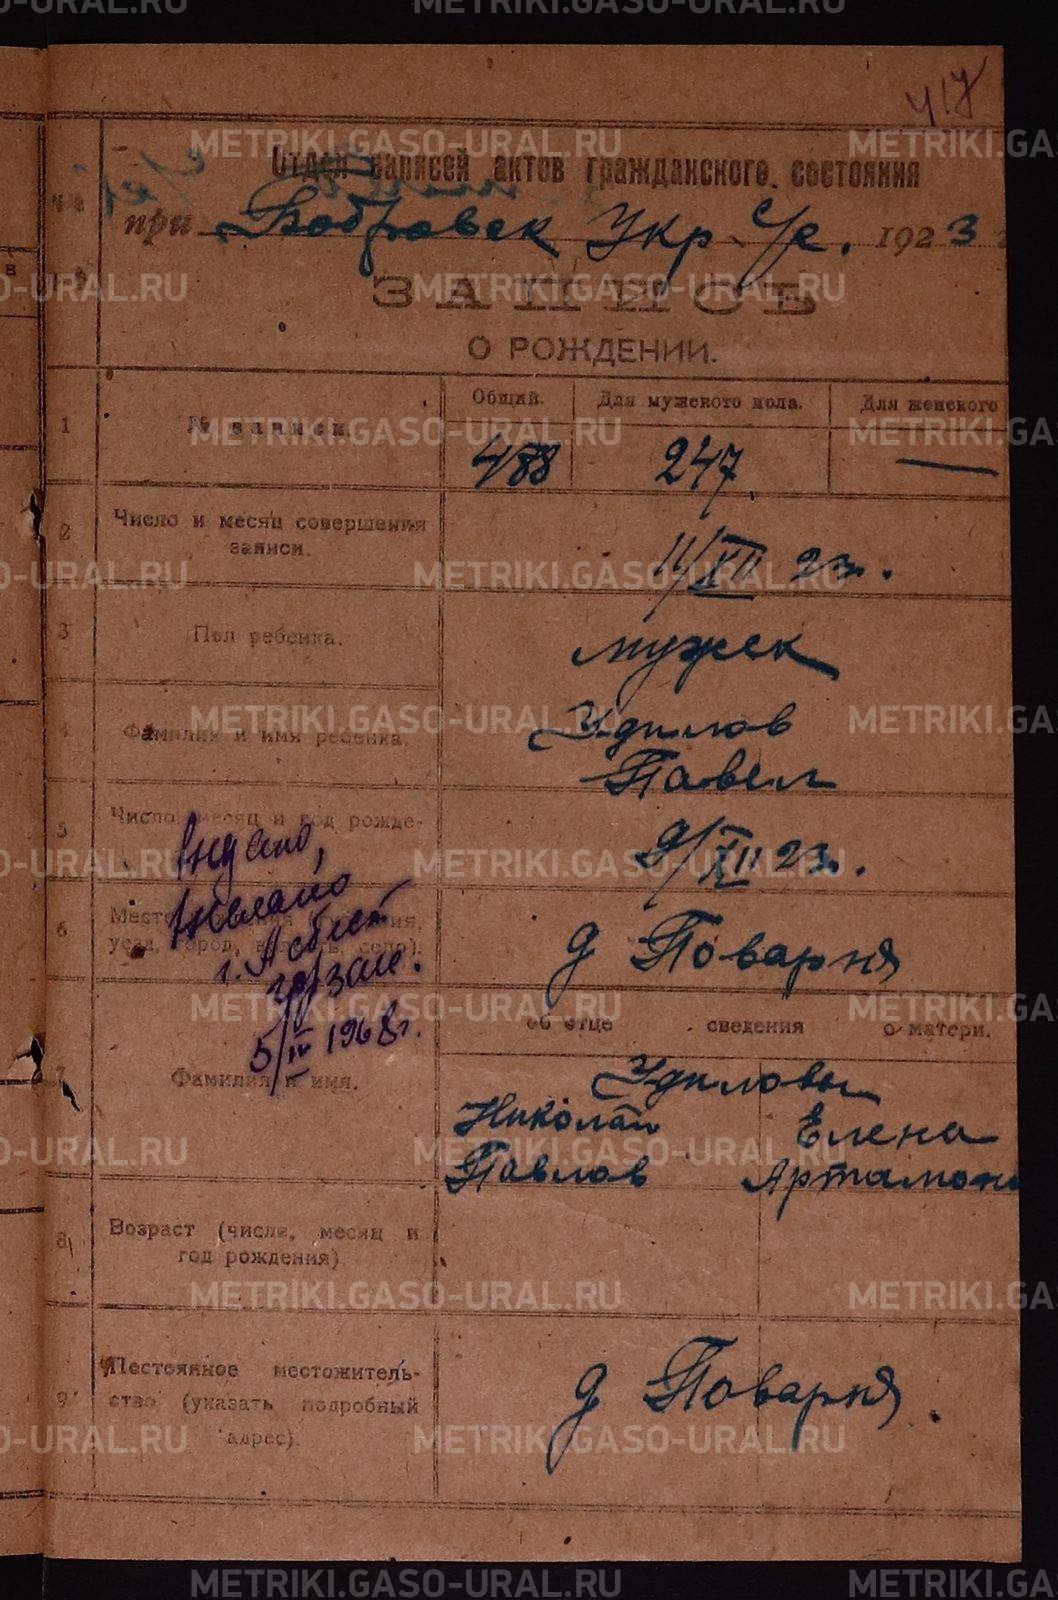 417
Отдел записей актов гражданского состояния
при Бобровск Укр с/с. 1923
ЗАПИСЬ
О РОЖДЕНИИ.
Общий. Для мужского пола. Для женского
1 № записи.
488 247 —
2 Число и месяц совершения
записи.
11/XII 23г.
3 Пол ребенка.
мужск
4 Фамилия и имя ребенка.
Удилов
Павел
5 Число, месяц и год рожде-
9/XII 23г.
6 Место
уезд, город, село).
д Поварня
г. Асбест
5/IV 1968г.
об отце сведения о матери.
7 Фамилия и имя.
Удиловы
Николай Елена
Павлов Артамон
8 Возраст (число, месяц и
год рождения)
9 Постоянное местожитель-
ство (указать подробный
адрес)
д Поварня
METRIKI.GASO-URAL.RU